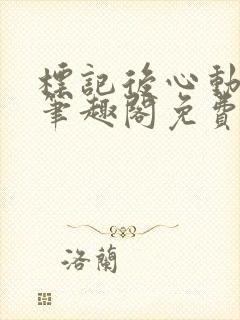 標記後心動
筆趣閣免費
洛蘭